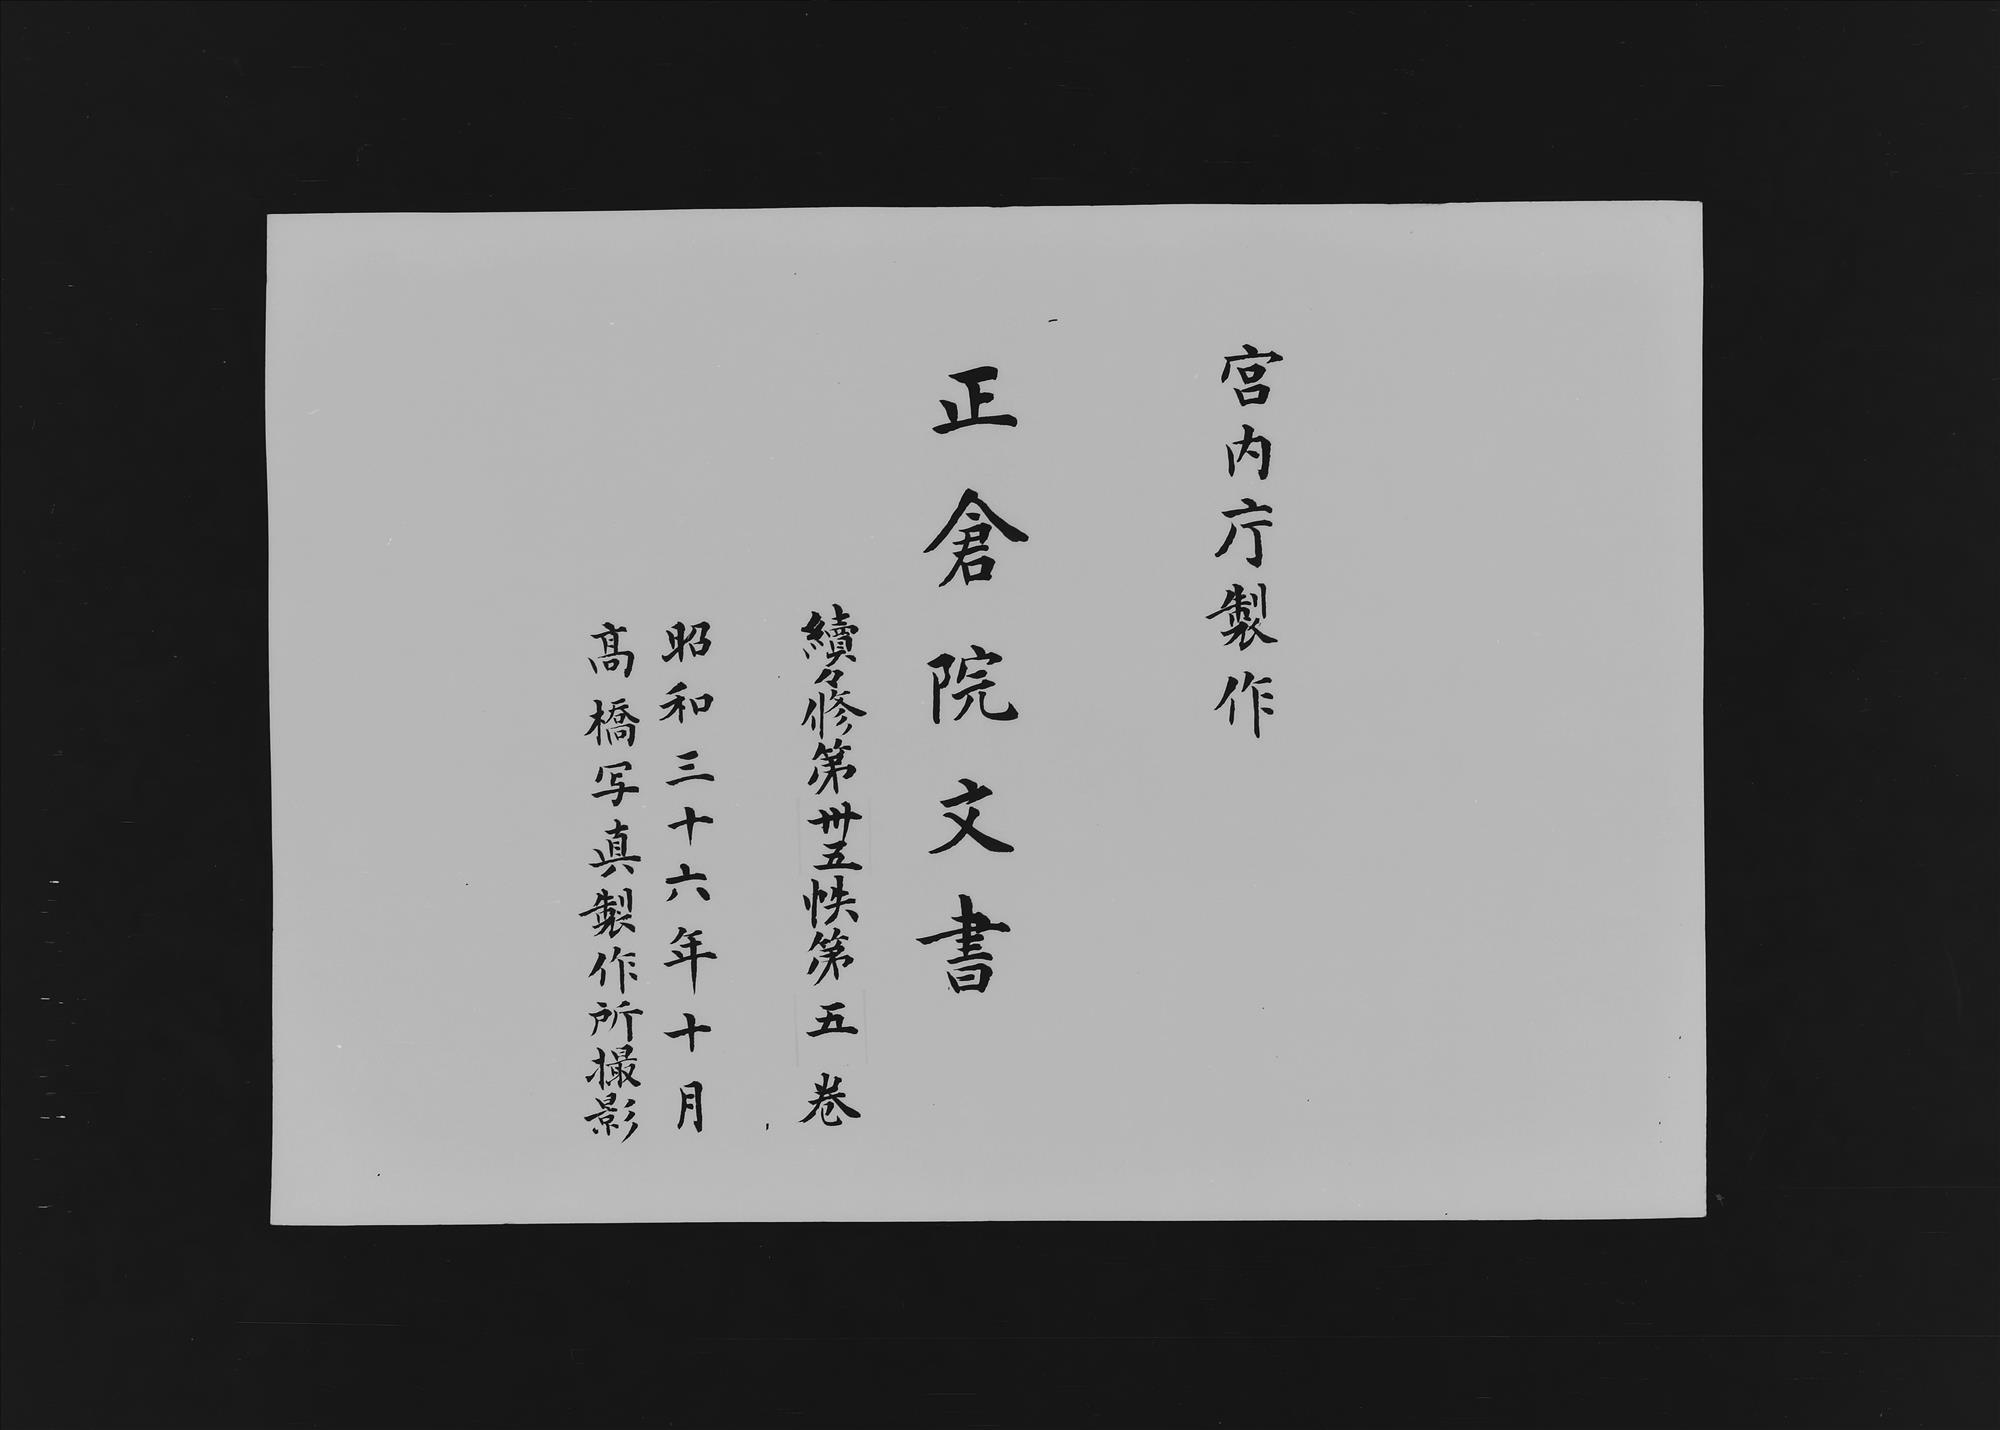 宮内庁製作
正倉院文書
續々修第卅五帙第五巻
昭和三十六年十月
髙橋写真製作所撮影